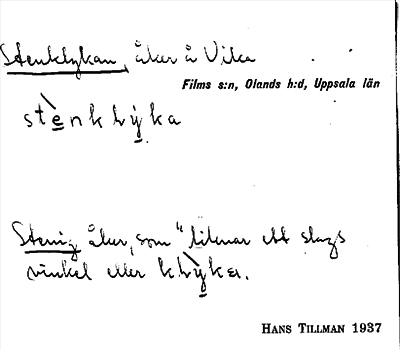 Stenklykan, åker å Vika
Films s:n, Olands h:d, Uppsala län
stènklyka
Stenig åker, som "liknar ett slags
vinkel eller klyka.
HANS TILLMAN 1937